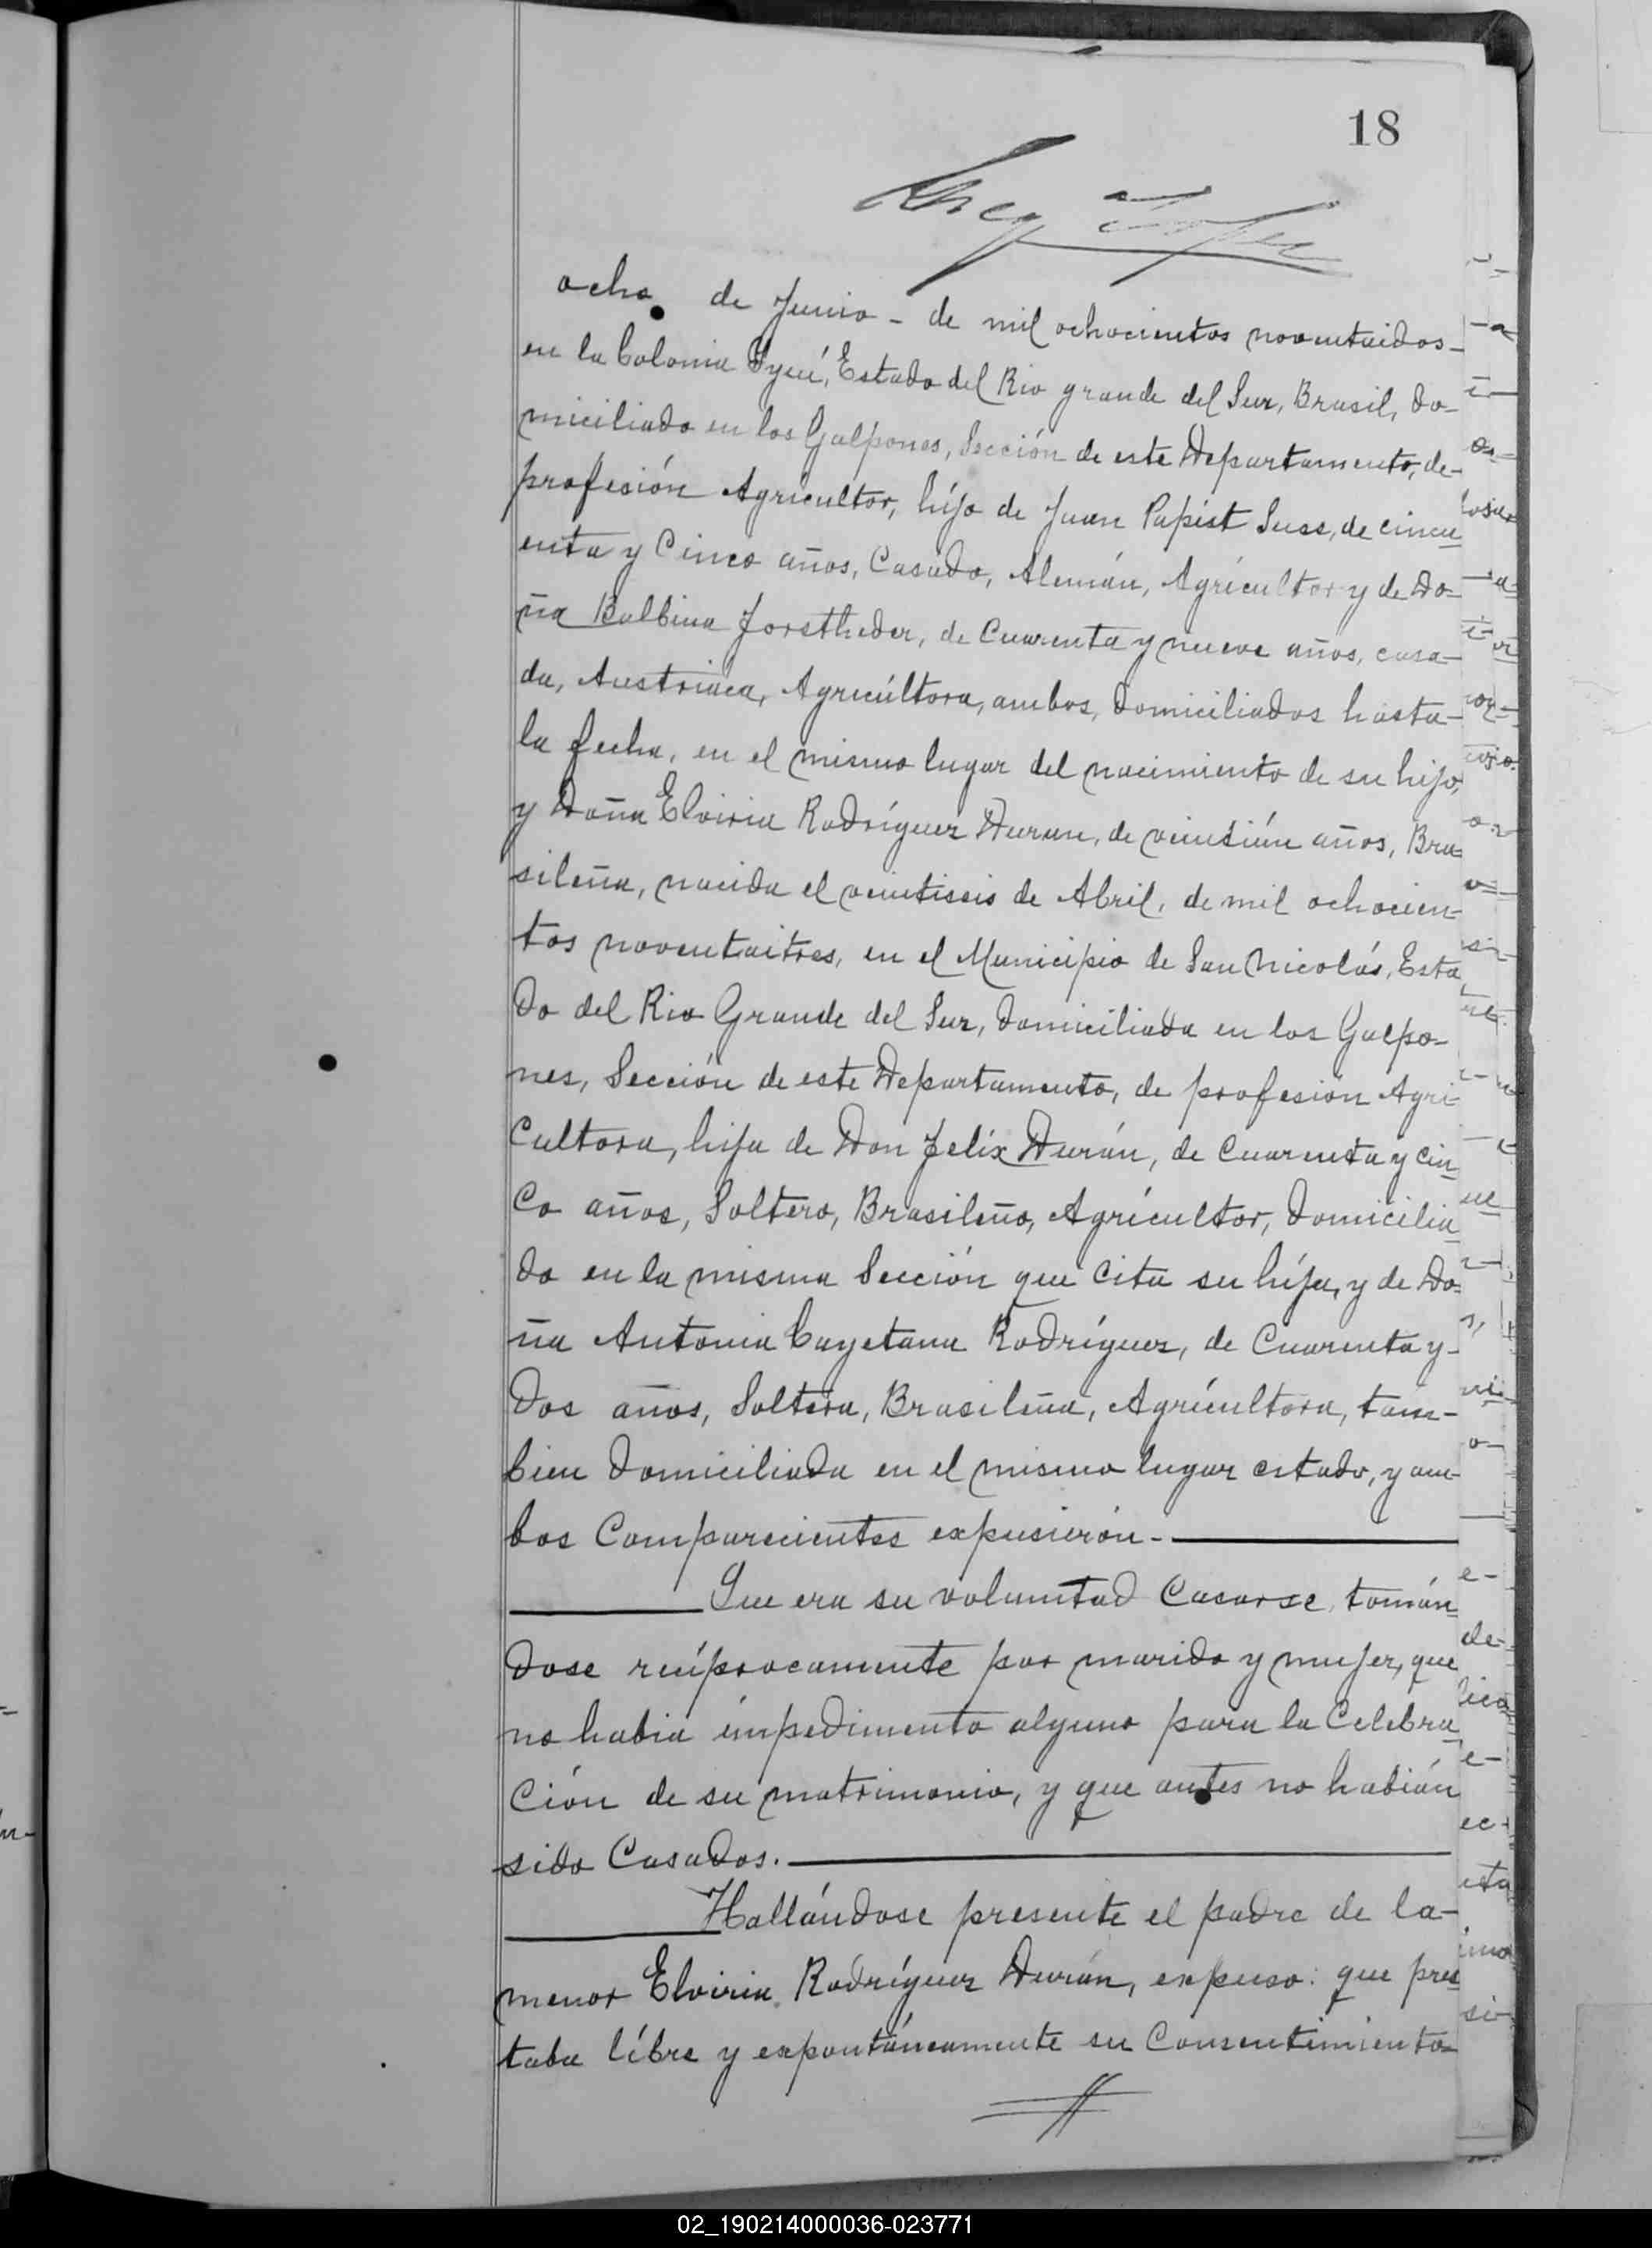 18
ocho de Junio - de mil ochocientos noventaidos-
en la Colonia Yyuí, Estado del Rio grande del Sur, Brasil, do-
miciliado en los Galpones, Sección de este Departamento, de-
profesión Agricultor, hijo de Juan Papist Suss, de cincu
enta y Cinco años, Casado, Alemán, Agricultor y de Do-
ña Balbina Forstheder, de Cuarenta y nueve años, casa-
da, Austriaca, Agricúltora, ambos, domiciliados hasta-
la fecha, en el mismo lugar del nacimiento de su hijo,
y Doña Elviria Rodríguez Duran, de veintiún años, Bra
sileña, nacida el veintiseis de Abril, de mil ochocien-
tos noventaitres, en el Municipio de San Nicolás, Esta
do del Rio Grande del Sur, domiciliada en los Galpo-
nes, Sección de este Departamento, de profesion Agri
Cultora, hija de Don Felíx Durán, de Cuarenta y cin
Co años, Soltero, Brasileño, Agrícultor, domicilia
do en la misma Sección que cita su híja, y de Do-
ña Antonia Cayetana Rodríguez, de Cuarenta y-
Dos años, Soltera, Brasileña, Agrícultora, tam-
bien domiciliada en el mismo lugar citado, y am-
bos Comparecientes expusierón-
Que era su voluntad Casarse, tomán
dose recíprocamente por marido y mujer, que
no habia impedimento alguno para la Celebra
Ción de su matrimonio, y que antes no habián
sido Casados.
Hallándose presente el padre de la-
menor Elviria Rodríguez Durán, expuso: que pres
taba líbre y expontáneamente su Consentimiento-
02_190214000036-023771